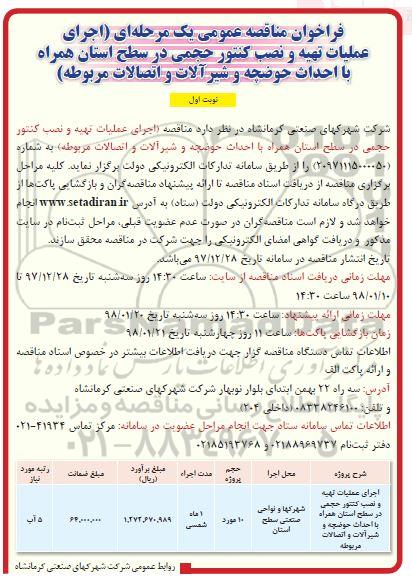 فراخوان مناقصه عمومی یک مرحله‌ای (اجرای
عملیات تهیه و نصب کنتور حجمی در سطح استان همراه
با احداث حوضچه و شیرآلات و اتصالات مربوطه)
نوبت اول
شرکت شهرکهای صنعتی کرمانشاه در نظر دارد مناقصه (اجرای عملیات تهیه و نصب کنتور
حجمی در سطح استان همراه با احداث حوضچه و شیرآلات و اتصالات مربوطه) به شماره
(۲۰۹۷۱۱۱۵۰۰۰۰۵۰) را از طریق سامانه تدارکات الکترونیکی دولت برگزار نماید. کلیه مراحل
برگزاری مناقصه از دریافت اسناد مناقصه تا ارائه پیشنهاد مناقصه‌گران و بازگشایی پاکت‌ها از
طریق درگاه سامانه تدارکات الکترونیکی دولت (ستاد) به آدرس www.setadiran.ir انجام
خواهد شد و لازم است مناقصه‌گران در صورت عدم عضویت قبلی، مراحل ثبت‌نام در سایت
مذکور و دریافت گواهی امضای الکترونیکی را جهت شرکت در مناقصه محقق سازند.
تاریخ انتشار مناقصه در سامانه تاریخ ۹۷/۱۲/۲۸ می‌باشد.
مهلت زمانی دریافت اسناد مناقصه از سایت: ساعت ۱۴:۳۰ روز سه‌شنبه تاریخ ۹۷/۱۲/۲۸ تا
۹۸/۰۱/۱۰ ساعت ۱۴:۳۰
مهلت زمانی ارائه پیشنهاد: ساعت ۱۴:۳۰ روز سه‌شنبه تاریخ ۹۸/۰۱/۲۰
زمان بازگشایی پاکت‌ها: ساعت ۱۱ روز چهارشنبه تاریخ ۹۸/۰۱/۲۱
اطلاعات تماس دستگاه مناقصه گزار جهت دریافت اطلاعات بیشتر در خصوص اسناد مناقصه
و ارائه پاکت الف
آدرس: سه راه ۲۲ بهمن ابتدای بلوار نوبهار شرکت شهرکهای صنعتی کرمانشاه
و تلفن: ۰۸۳۳۸۲۴۶۱۰۰ (داخلی ۲۰۴)
اطلاعات تماس سامانه ستاد جهت انجام مراحل عضویت در سامانه: مرکز تماس ۴۱۹۳۴-۰۲۱
دفتر ثبت‌نام ۰۲۱۸۸۹۶۹۷۳۷ و ۰۲۱۸۵۱۹۳۷۶۸
شرح پروژه | محل اجرا | حجم پروژه | مدت اجراء | مبلغ برآورد (ریال) | مبلغ ضمانت | رتبه مورد نیاز
اجرای عملیات تهیه و نصب کنتور حجمی در سطح استان همراه با احداث حوضچه و شیرآلات و اتصالات مربوطه | شهرکها و نواحی صنعتی سطح استان | ۱۰ مورد | ۱ ماه شمسی | ۱,۲۷۴,۶۷۰,۹۸۹ | ۶۴,۰۰۰,۰۰۰ | ۵ آب
روابط عمومی شرکت شهرکهای صنعتی کرمانشاه